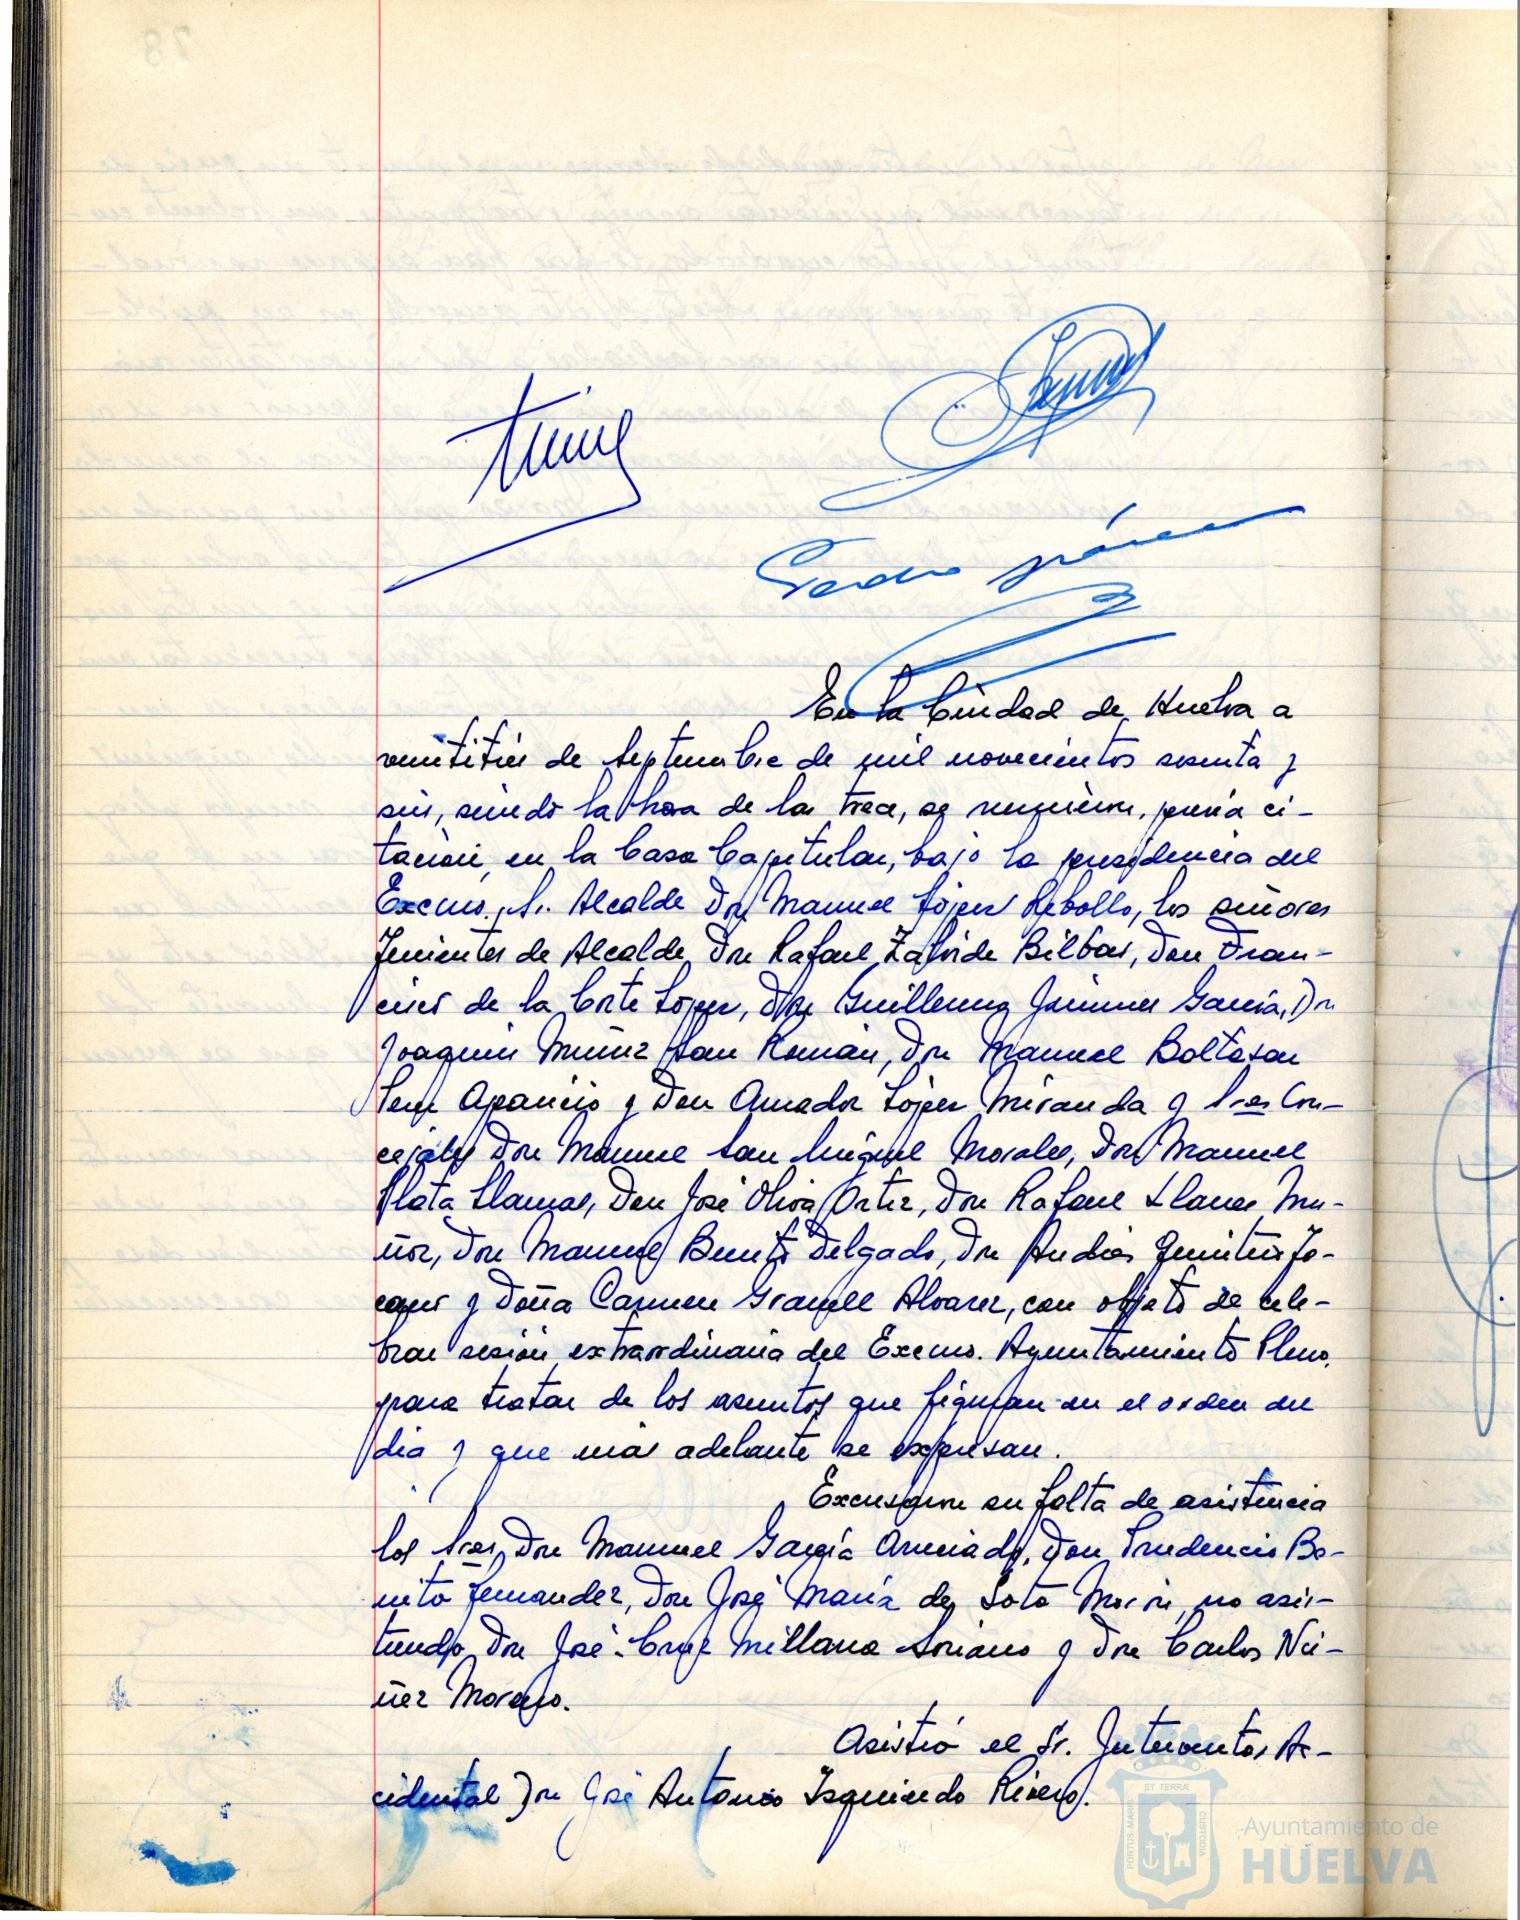 En la Ciudad de Huelva a
veintitrés de Septiembre de mil novecientos sesenta y
seis, siendo la hora de las trece, se reunieron, previa ci-
tación, en la Casa Capitular, bajo la presidencia del
Excmo. Sr. Alcalde Don Manuel López Rebollo, los señores
Tenientes de Alcalde Don Rafael Zalvide Bilbao, Don Fran-
cisco de la Corte López, Don Guillermo Jiménez García, Don
Joaquín Muñiz San Román, Don Manuel Baltasar
Aparicio y Don Amador López Miranda y Sres Con-
cejales Don Manuel San Miguel Morales, Don Manuel
Plata Llamas, Don José Oliva Ortiz, Don Rafael Llanes Mu-
ñoz, Don Manuel Benito Delgado, Don Andrés
y Doña Carmen Granell Alvarez, con objeto de cele-
brar sesión extraordinaria del Excmo. Ayuntamiento Pleno,
para tratar de los asuntos que figuran en el orden del
día y que más adelante se expresan.
Excusaron su falta de asistencia
los Sres Don Manuel García Don Prudencio Bo-
nito Fernandez, Don José María de Soto no asis-
tiendo Don José Cruz Millana Soriano y Don Carlos Nú-
ñez Moreno.
Asistió el Sr. Interventor Ac-
cidental Don José Antonio Izquierdo Rivero.
ET TERRÆ
PORTUS MARIS
CUSTODIA
Ayuntamiento de
HUELVA